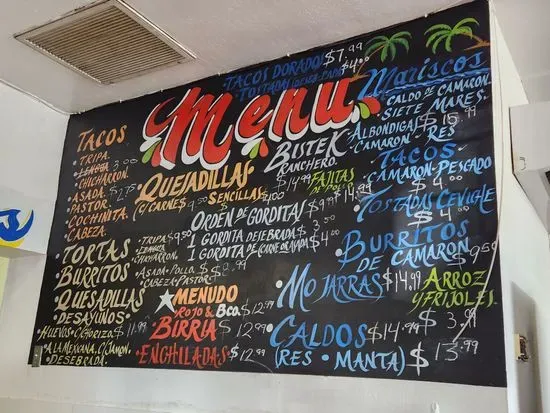 TACOS DORADOS $7.99
TOSTADAS $4.00
Menu
TACOS
• TRIPA.
• LENGUA 3.00
• CHICHARRON.
• ASADA. $2.75
• PASTOR.
• COCHINITA.
• CABEZA.
QUESADILLAS
(C/CARNE $9.50 SENCILLAS $4.00
BISTEK
RANCHERO.
$14.99 FAJITAS
DE POLLO
$14.99
ORDEN DE GORDITAS $9.99
1 GORDITA DESEBRADA $3.50
1 GORDITA DE (CARNE DE ASADA $4.00
TORTAS
BURRITOS
QUESADILLAS
• TRIPA $9.50
• LENGUA
• CHICHARRON.
• ASADA • POLLO
• CABEZA • PASTOR
DESAYUNOS
• HUEVOS C/CHORIZO $11.99
• A LA MEXICANA. C/JAMON.
• DESEBRADA.
MENUDO
ROJO & BCO. $12.99
BIRRIA $12.99
• ENCHILADAS $12.99
Mariscos
CALDO DE CAMARON.
SIETE MARES.
$15.99
ALBONDIGAS
CAMARON • RES
TACOS
CAMARON • PESCADO
$4.00
TOSTADAS CEVICHE
$4.00
BURRITOS
DE CAMARON
$9.50
• MOJARRAS $14.99
ARROZ
Y FRIJOLES.
$3.99
• CALDOS $14.99
(RES • MANTA) $13.99